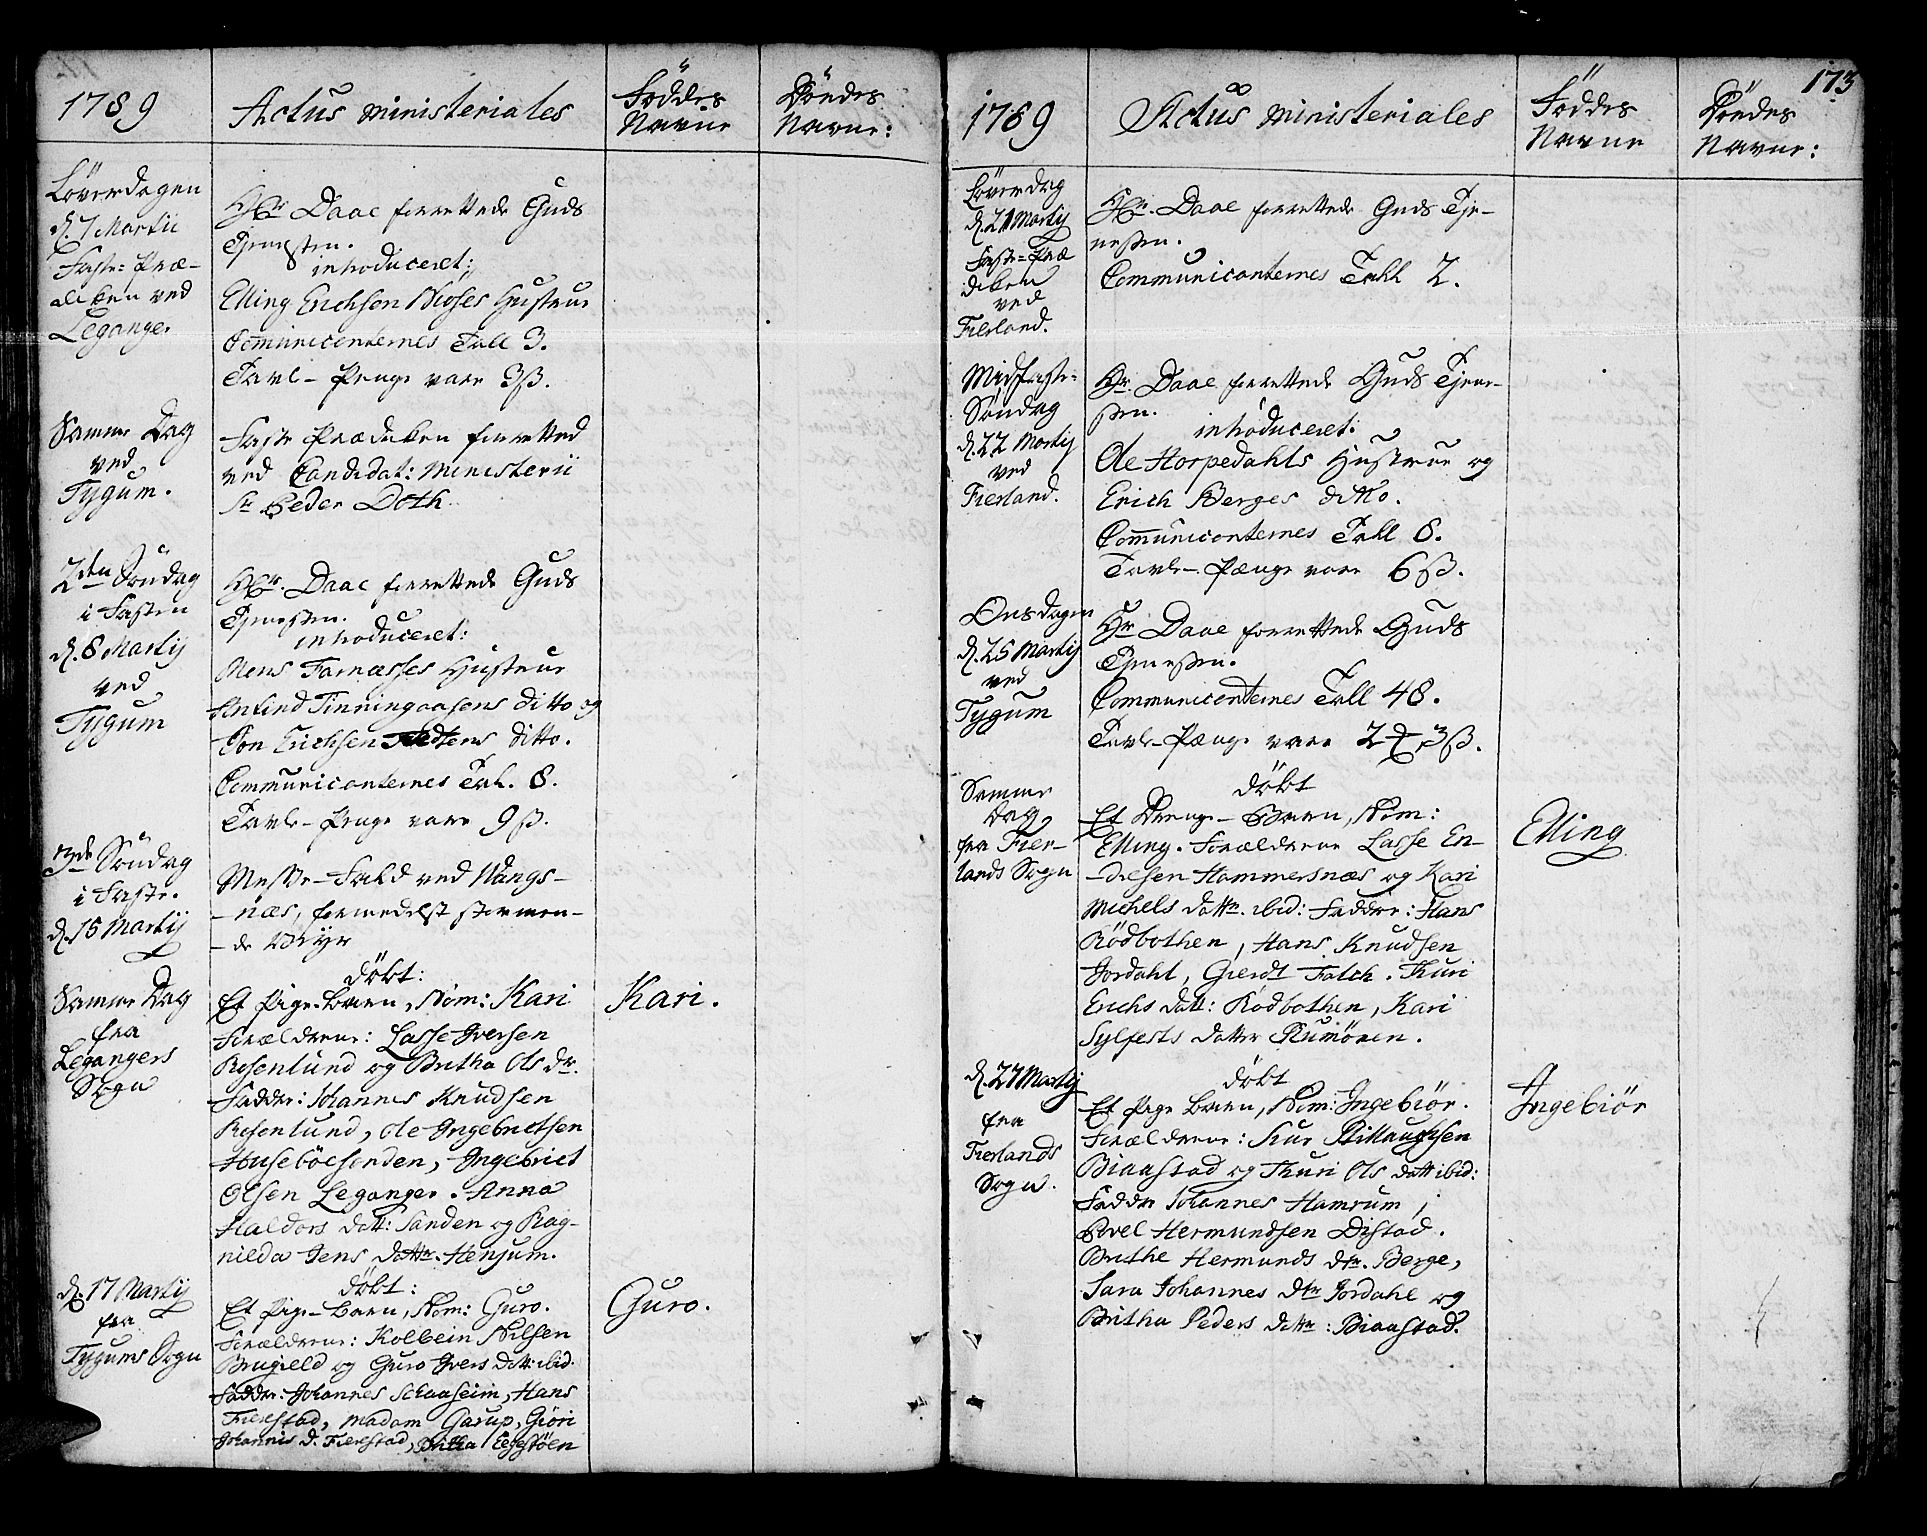 1789
Actus ministeriales
Föddes
Navne
Döedes
Navne:
Löverdagen
d. 7 Martii
Faste-Præ-
diken ved
Leganger
Hr. Daae forrettede Guds
Tjenesten.
introduceret;
Elling Erichsen Moses Hustrue
Communicanternes Tall 3.
Tavle-Penge vare 3ß.
Samme Dag
ved
Tygum.
Faste Prædiken forretted
ved Candidat: Ministerii
Sr Peder Doth.
2den Söndag
i Fasten
d. 8 Martij
ved
Tygum
Hr. Daae forrettede Guds
Tjenesten.
introduceret:
Mons Farnæsses Hustrue
Anfind Tinningaasens ditto og
Jon Erichsen ditto.
Communicanternes Tal. 8.
Tavle-Penge vare 9ß.
3de Söndag
i Faste.
d. 15 Martij
Messe-Fald ved Wangs-
-næs, formedelst stormen-
-de Veyr
Samme Dag
fra
Legangers
Sogn
döbt:
Et Pige-barn, Nom: Kari
Forældrene: Lasse Iversen
Rosenlund og Britha Ols dr.
Fadder: Johannes Knudsen
Rosenlund, Ole Ingebrietsen
Huseböesenden, Ingebriet
Olsen Leganger. Anna
Haldors datt: Sanden og Rag-
nilda Jens dattr. Henjum.
Kari.
d. 17 Martij
fra
Tygums Sogn
döbt:
Et Pige-barn, Nom: Guro.
Forældrene: Kolbein Nilsen
Brugield og Guro Ivers datt: ibid.
Fadder: Johannes Schaaseim, Hans
Fierestad, Madam Garup, Giöri
Johannis d. Fierestad, Britha Eegestöen
Guro.
173
1789
Actus ministeriales
Föddes
Navne
Döedes
Navne:
Löverdag
d. 21 Martij
Faste-Præ
diken
ved
Fierland.
Hr. Daae forrettede Guds Tje-
nesten.
Communicanternes Tall 2.
Midfaste-
Söndag
d. 22 Martij
ved
Fierland.
Hr. Daae forrettede Guds Tjene-
sten.
introduceret:
Ole Horpedahls Hustrue og
Erich Berges ditto.
Communicanternes Tall 8.
Tavle-Penge vare 6ß.
Onsdagen
d. 25 Martij
ved
Tygum
Hr Daae forrettede Guds
Tjenesten.
Communicanternes Tall 48.
Tavle-Penge vare 2 3ß.
Samme
Dag
fra Fier-
lands Sogn
döbt
Et Drenge-Barn, Nom:
Elling. Forældrene Lasse En-
-dresen Hammersnæs og Kari
Michels dattr. ibid: Fadder: Hans
Rödbothen, Hans Knudsen
Jordahl, Gierdt Falch. Thuri
Erichs datt: Rödbothen, Kari
Sylfests datter Rumören.
Elling
d. 27 Martij
fra
Fierlands
Sogn.
döbt
Et Pige Barn, Nom: Ingebiör.
Forældrene:
Biaastad og Thuri Ols datt ibid:
Fadder Johannes Hamrum,
Povel Hermundsen Distad.
Brithe Hermunds dtr. Berge,
Sara Johannes dtr Jordahl og
Britha Peders dattr: Biaastad.
Ingebiör